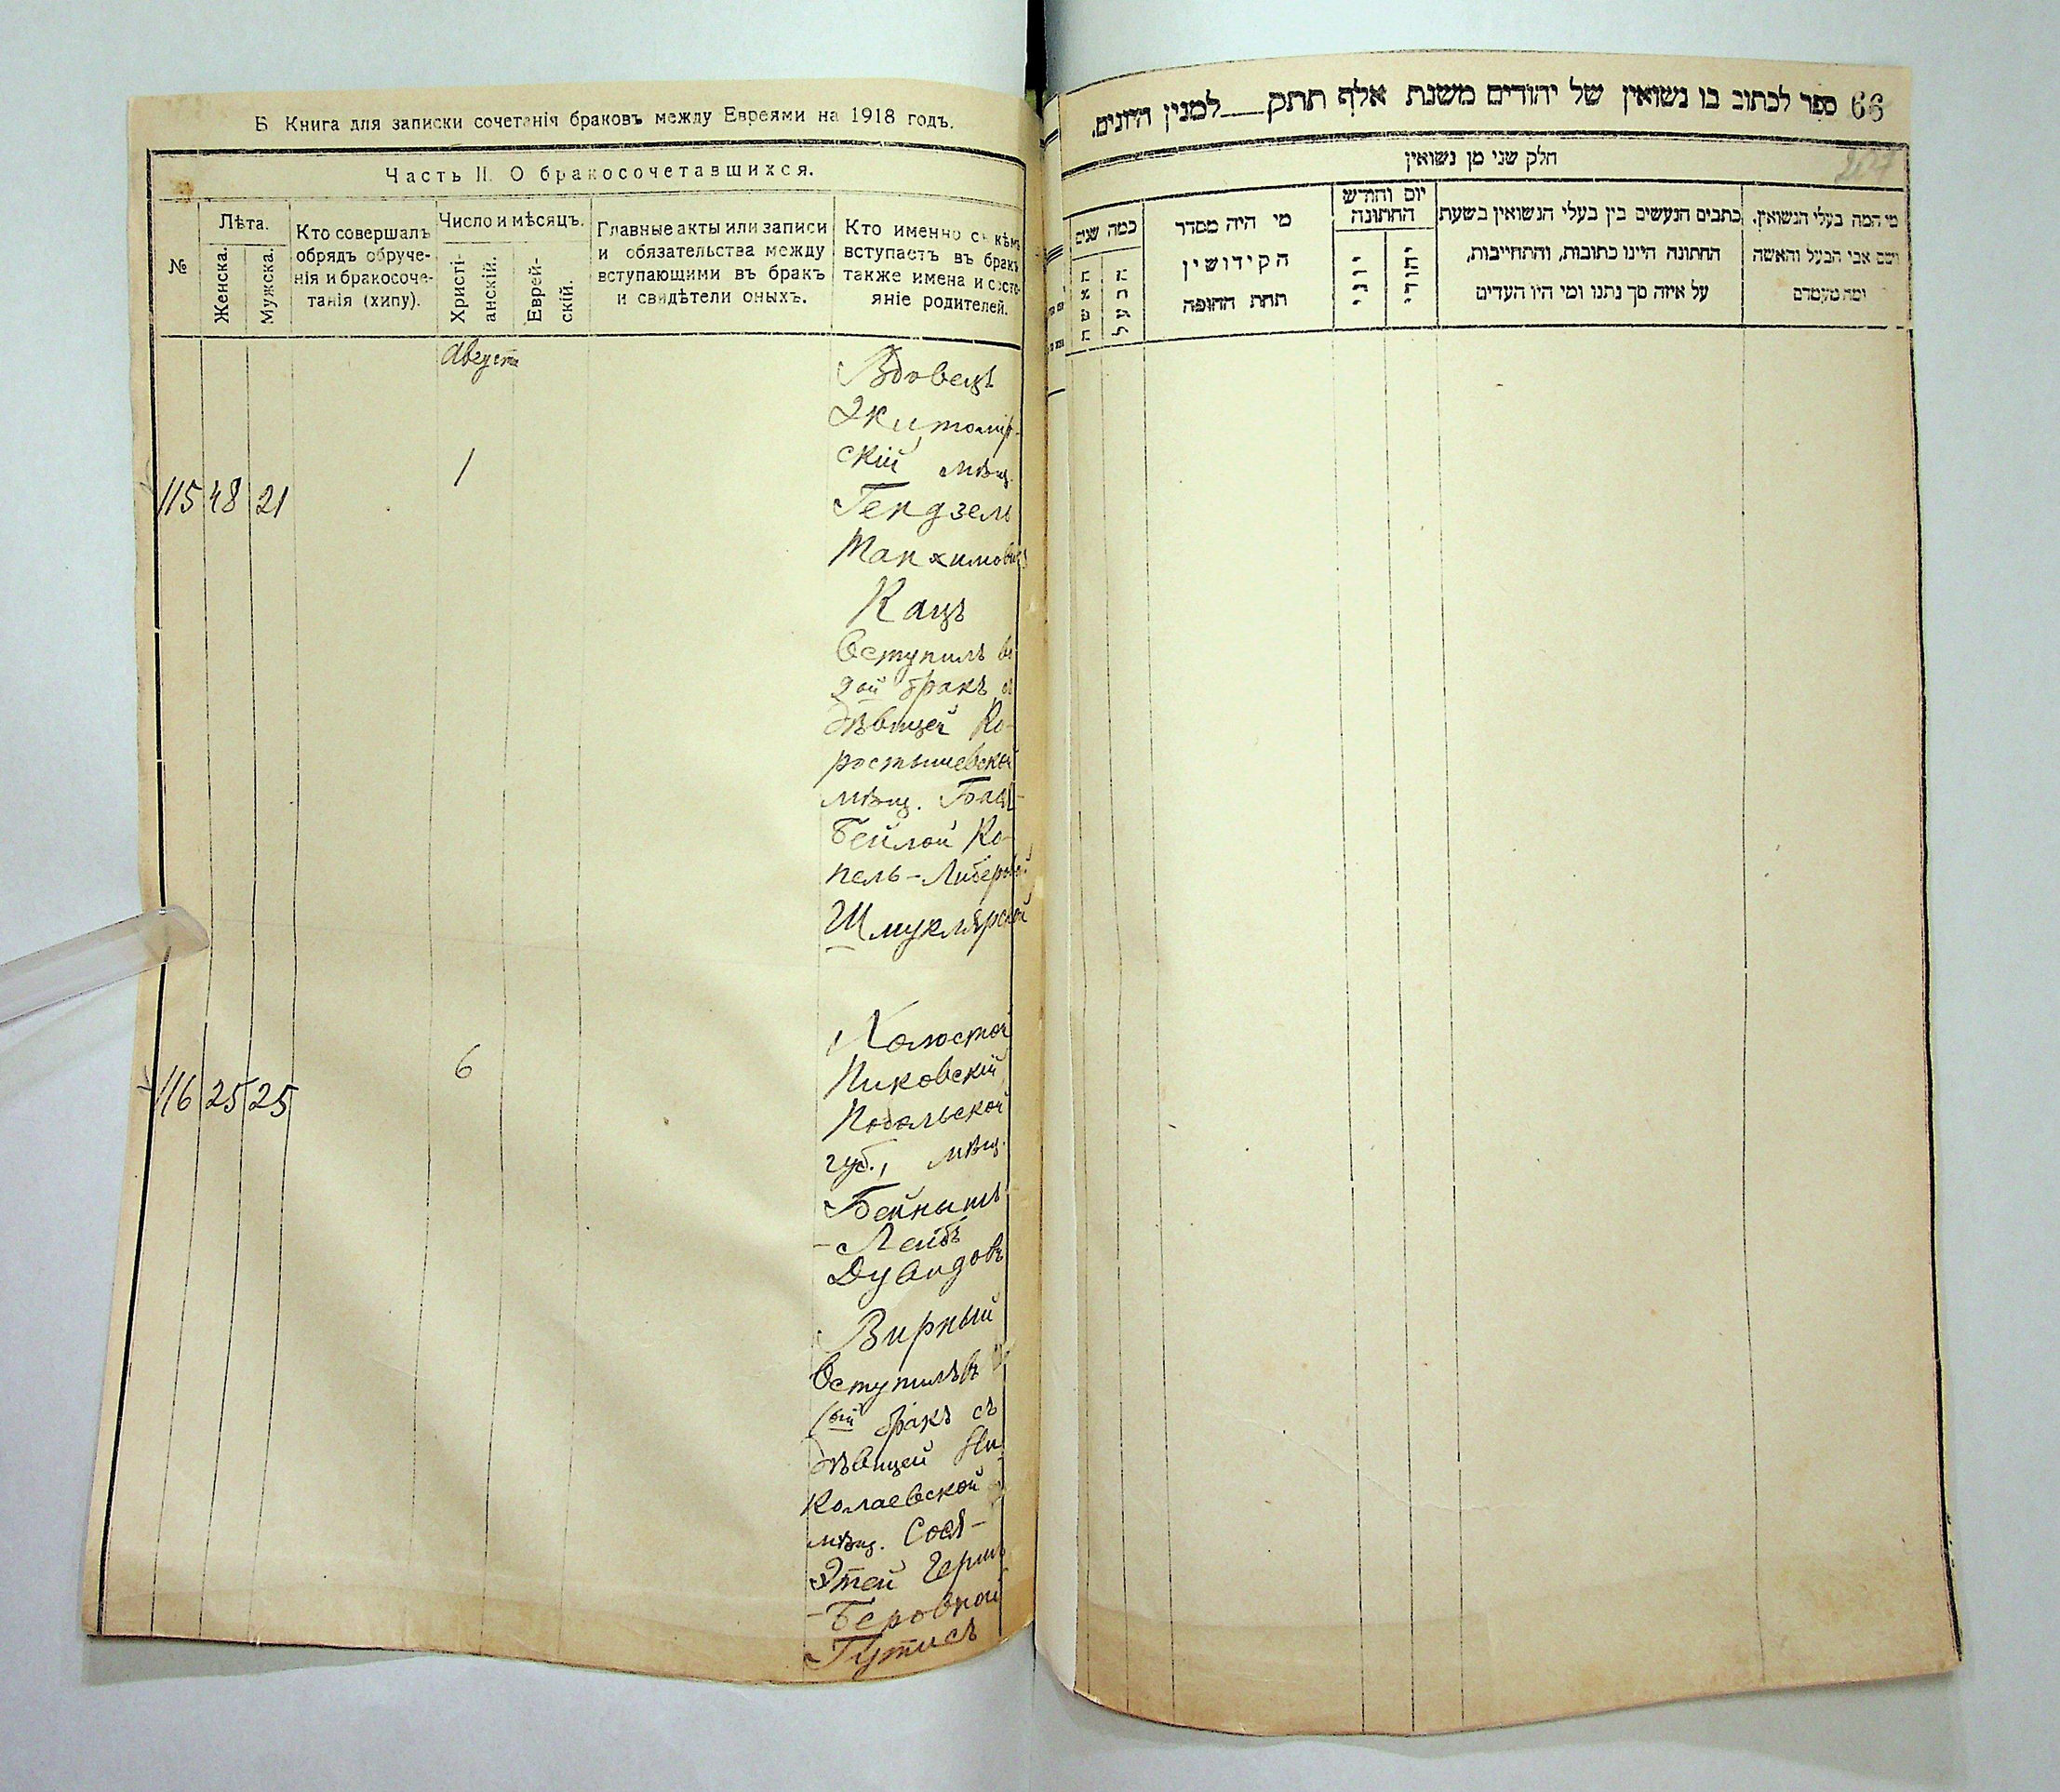 Б Книга для записки сочетанія браковъ между Евреями на 1918 годъ.
Часть II. О бракосочетавшихся.
№
Лѣта.
Женска.
Мужска.
Кто совершалъ
обрядъ обруче-
нія и бракосоче-
танія (хипу).
Число и мѣсяцъ.
Христі-
анскій.
Еврей-
скій.
Главные акты или записи
и обязательства между
вступающими въ бракъ
и свидѣтели оныхъ.
Кто именно съ кѣмъ
вступаетъ въ бракъ
также имена и состо-
яніе родителей.
Августа
115 48 21
1
Вдовецъ
Житомір-
скій мѣщ.
Гендзель
Манхимовъ
Кацъ
Вступилъ въ
2ой бракъ съ
дѣвицей Ко-
ростышевской
мѣщ. Бася-
Бейлой Ко-
пель-Либеровой
Шмуклярской
116 25 25
6
Холостой
Пиковскій
Подольской
губ., мѣщ.
Бейнышъ
-Лейбъ
Дувидовъ
Вирный
Вступилъ въ
1ый бракъ съ
дѣвицей Ни
колаевской
мѣщ. Сося-
Этей Герш
-Беровной
Гутисъ
66 ספר לכתוב בו נשואין של יהודים משנת אלף תתק___למנין היונים.
חלק שני מן נשואין
מי המה בעלי הנשואין.
ושם אבי הבעל והאשה
ומה מעמדם
כתבים הנעשים בין בעלי הנשואין בשעת
החתונה היינו כתובות, והתחייבות,
על איזה סך נתנו ומי היו העדים
יום וחודש
החתונה
יהודי
יוני
מי היה מסדר
הקידושין
תחת החופה
כמה שנים
הבעל
האשה